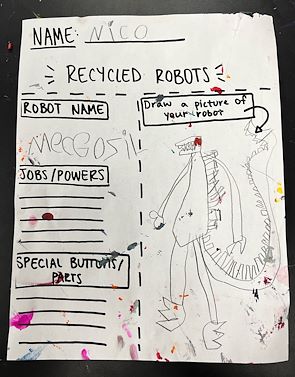 NAME: NICO
RECYCLED ROBOTS
ROBOT NAME
Draw a picture of
your robot
JOBS/POWERS
SPECIAL BUTTONS/
PARTS